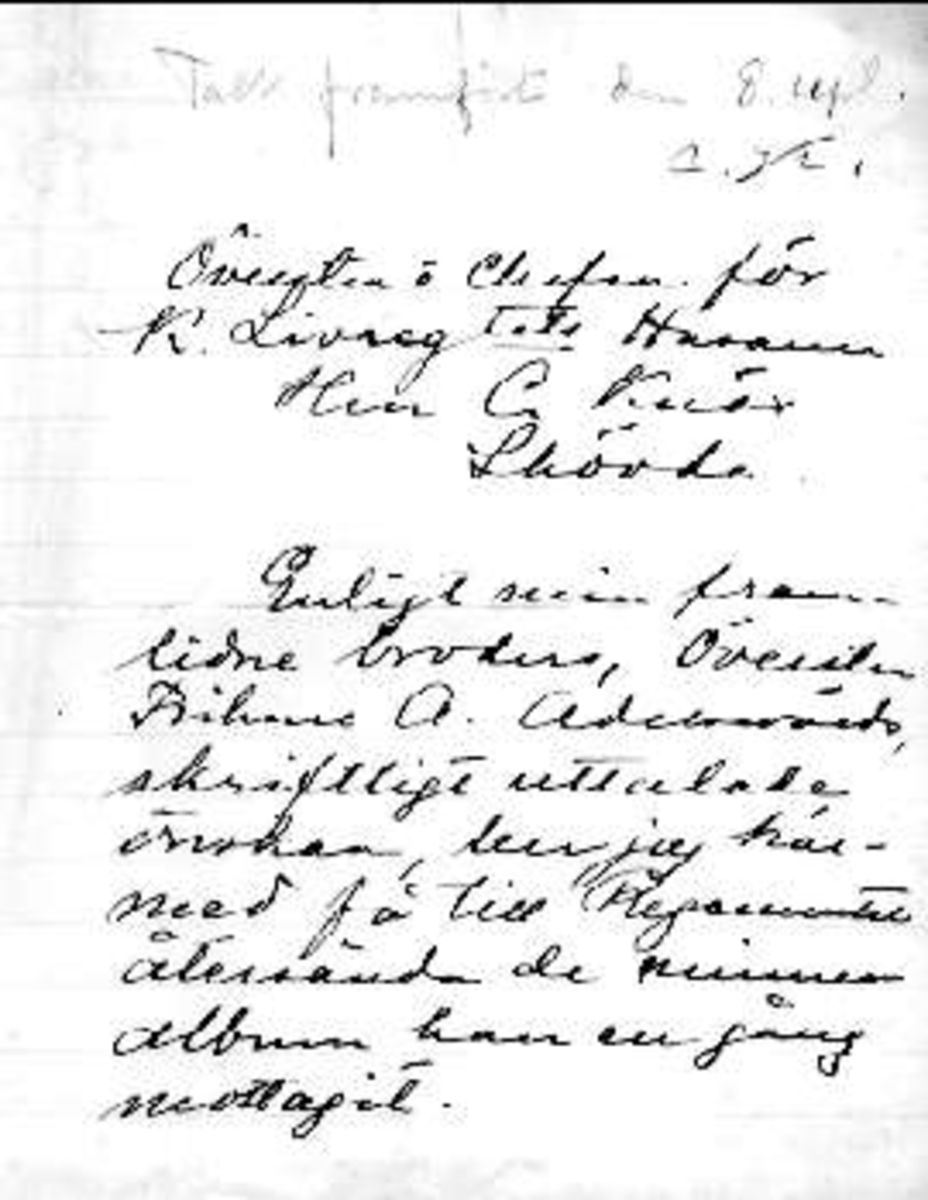 Tack framfört den 8. sept.
Översten o Chefen för
K. Livreg tets Husarer
Herr C
Skövde.
Enligt min fram
lidne broders, Översten
A. Adelswärds,
skriftligt uttalade
önskan, ber jag här-
med få till Regementet
återsända de minnes
album han en gång
mottagit.